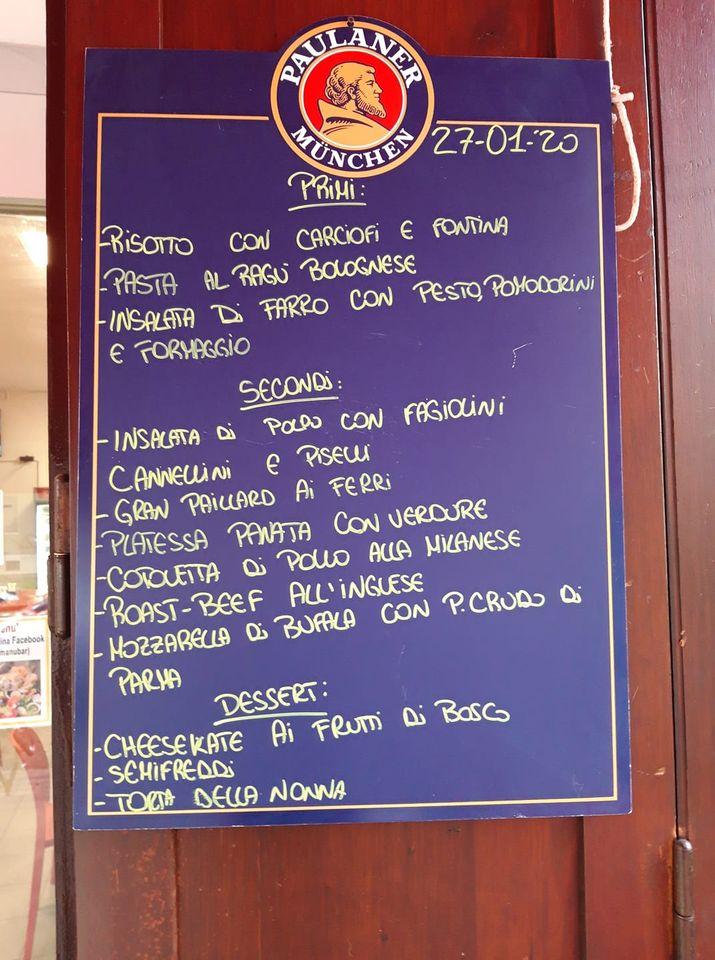 PAULANER
MÜNCHEN
27-01-'20
PRIMI:
-RISOTTO CON CARCIOFI E FONTINA
-PASTA AL RAGU' BOLOGNESE
-INSALATA DI FARRO CON PESTO, POMODORINI
E FORMAGGIO
SECONDI:
-INSALATA DI POLPO CON FAGIOLINI
CANNELLINI E PISELLI
-GRAN PAILLARD AI FERRI
-PLATESSA PANATA CON VERDURE
-COTOLETTA DI POLLO ALLA MILANESE
-ROAST-BEEF ALL'INGLESE
-MOZZARELLA DI BUFALA CON P. CRUDO DI
PARMA
DESSERT:
-CHEESEKATE AI FRUTTI DI BOSCO
-SEMIFREDDI
-TORTA DELLA NONNA
ina Facebook
manubar)